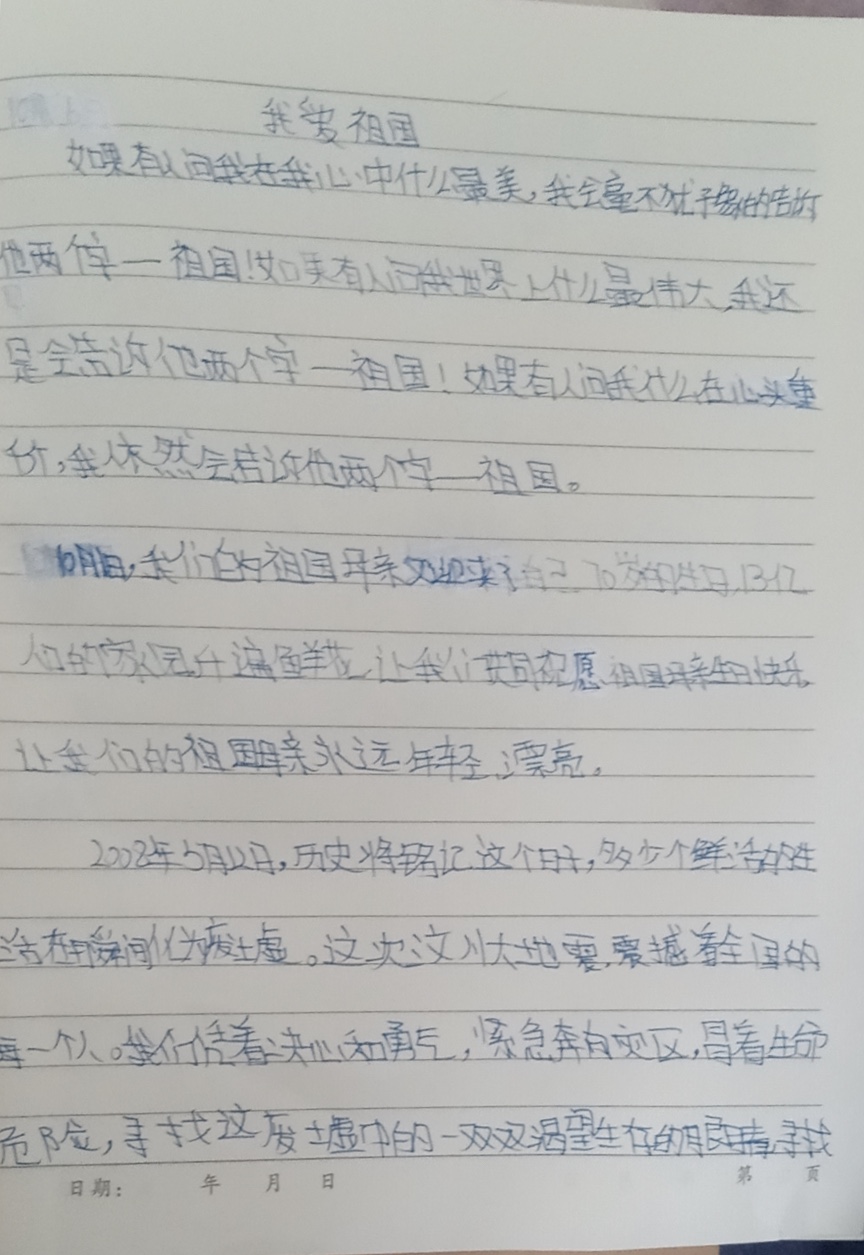 我爱祖国
如果有人问我在我心中什么最美,我会毫不犹予的告诉
他两个字一祖国!如果有人问我世界上什么最伟大,我还
是会告诉他两个字一祖国!如果有人问我什么在心头重
价,我依然会告诉他两个字一祖国。
10月1日,我们的祖国母亲又迎来了自己70岁的生日,13亿
人的家园开遍鲜花,让我们共同祝愿祖国母亲生日快乐
让我们的祖国母亲永远年轻、漂亮。
2008年5月12日,历史将铭记这个日子,多少个鲜活的生
活在瞬间化为废土虚。这次汶川大地震,震撼着全国的
每一个人。我们凭着决心和勇气,紧急奔向灾区,冒着生命
危险,寻找这废土虚中的一双双渴望生存的眼睛,寻找
日期: 年 月 日 第 页